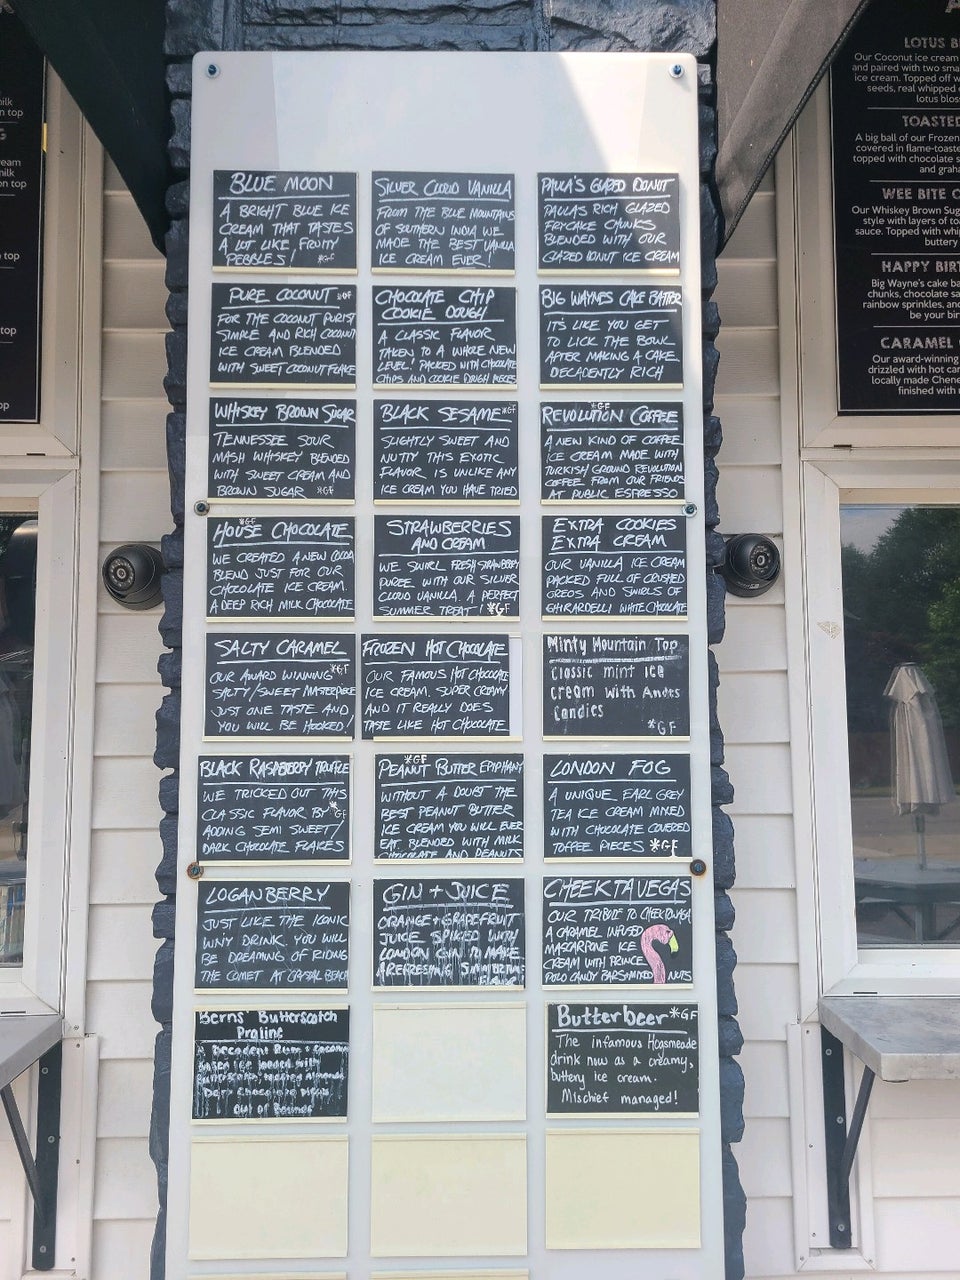 BLUE MOON
A BRIGHT BLUE ICE
CREAM THAT TASTES
A LOT LIKE, FRUITY
PEBBLES! *GF
SILVER CLOUD VANILLA
FROM THE BLUE MOUNTAINS
OF SOUTHERN INDIA WE
MADE THE BEST VANILLA
ICE CREAM EVER!
PAULA'S GLAZED DONUT
PAULA'S RICH GLAZED
FRYCAKE CHUNKS
BLENDED WITH OUR
GLAZED DONUT ICE CREAM
PURE COCONUT *GF
FOR THE COCONUT PURIST
SIMPLE AND RICH COCONUT
ICE CREAM BLENDED
WITH SWEET COCONUT FLAKE
CHOCOLATE CHIP
COOKIE DOUGH
A CLASSIC FLAVOR
TAKEN TO A WHOLE NEW
LEVEL! PACKED WITH CHOCOLATE
CHIPS AND COOKIE DOUGH PIECES
BIG WAYNES CAKE BATTER
IT'S LIKE YOU GET
TO LICK THE BOWL
AFTER MAKING A CAKE.
DECADENTLY RICH
WHISKEY BROWN SUGAR
TENNESSEE SOUR
MASH WHISKEY BLENDED
WITH SWEET CREAM AND
BROWN SUGAR *GF
BLACK SESAME *GF
SLIGHTLY SWEET AND
NUTTY THIS EXOTIC
FLAVOR IS UNLIKE ANY
ICE CREAM YOU HAVE TRIED
*GF
REVOLUTION COFFEE
A NEW KIND OF COFFEE
ICE CREAM MADE WITH
TURKISH GROUND REVOLUTION
COFFEE FROM OUR FRIENDS
AT PUBLIC ESPRESSO
*GF
HOUSE CHOCOLATE
WE CREATED A NEW COCOA
BLEND JUST FOR OUR
CHOCOLATE ICE CREAM.
A DEEP RICH MILK CHOCOLATE
STRAWBERRIES
AND CREAM
WE SWIRL FRESH STRAWBERRY
PUREE WITH OUR SILVER
CLOUD VANILLA. A PERFECT
SUMMER TREAT! *GF
EXTRA COOKIES
EXTRA CREAM
OUR VANILLA ICE CREAM
PACKED FULL OF CRUSHED
OREOS AND SWIRLS OF
GHIRARDELLI WHITE CHOCOLATE
SALTY CARAMEL
OUR AWARD WINNING *GF
SALTY/SWEET MASTERPIECE
JUST ONE TASTE AND
YOU WILL BE HOOKED!
FROZEN HOT CHOCOLATE
OUR FAMOUS HOT CHOCOLATE
ICE CREAM. SUPER CREAMY
AND IT REALLY DOES
TASTE LIKE HOT CHOCOLATE
Minty Mountain Top
Classic mint ice
cream with Andes
Candies
*GF
BLACK RASPBERRY TRUFFLE
WE TRICKED OUT THIS
CLASSIC FLAVOR BY *GF
ADDING SEMI SWEET/
DARK CHOCOLATE FLAKES
*GF
PEANUT BUTTER EPIPHANY
WITHOUT A DOUBT THE
BEST PEANUT BUTTER
ICE CREAM YOU WILL EVER
EAT. BLENDED WITH MILK
CHOCOLATE AND PEANUTS
LONDON FOG
A UNIQUE EARL GREY
TEA ICE CREAM MIXED
WITH CHOCOLATE COVERED
TOFFEE PIECES *GF
LOGANBERRY
JUST LIKE THE ICONIC
WNY DRINK. YOU WILL
BE DREAMING OF RIDING
THE COMET AT CRYSTAL BEACH
GIN + JUICE
ORANGE + GRAPEFRUIT
JUICE SPIKED WITH
LONDON GIN TO MAKE
A REFRESHING SUMMERTIME
FLAVOR
CHEEKTAVEGAS
OUR TRIBUTE TO CHEEKTOWAGA
A CARAMEL INFUSED
MASCARPONE ICE
CREAM WITH PRINCE
POLO CANDY BARS + MIXED NUTS
Berns' Butterscotch
Praline
A Decadent Rum + Coconut
Based ice
Butterscotch, toasted Almonds
Dark Chocolate
Out of Bounds
Butterbeer *GF
The infamous Hogsmeade
drink now as a creamy,
buttery ice cream.
Mischief managed!
milk
n top
G
ream
milk
n top
n top
top
op
LOTUS B
Our Coconut ice cream
and paired with two sma
ice cream. Topped off w
seeds, real whipped
lotus blos
TOASTED
A big ball of our Frozen
covered in flame-toaste
topped with chocolate s
and graha
WEE BITE O
Our Whiskey Brown Sug
style with layers of to
sauce. Topped with whip
buttery
HAPPY BIRT
Big Wayne's cake ba
chunks, chocolate sa
rainbow sprinkles, and
be your bir
CARAMEL
Our award-winning
drizzled with hot car
locally made Chene
finished with